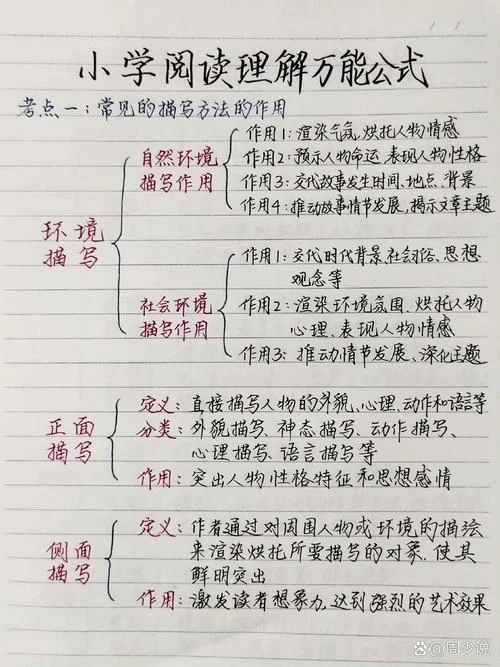 小学阅读理解万能公式
考点一：常见的描写方法的作用
环境描写
自然环境描写作用
作用1：渲染气氛,烘托人物情感
作用2：预示人物命运,表现人物性格
作用3：交代故事发生时间、地点、背景
作用4：推动故事情节发展,揭示文章主题
社会环境描写作用
作用1：交代时代背景,社会习俗、思想
观念等
作用2：渲染环境氛围、烘托人物
心理、表现人物情感
作用3：推动情节发展、深化主题
正面描写
定义：直接描写人物的外貌、心理、动作和语言等
分类：外貌描写、神态描写、动作描写、
心理描写、语言描写等
作用：突出人物性格特征和思想感情
侧面描写
定义：作者通过对周围人物或环境的描绘
来渲染烘托所要描写的对象,使其
鲜明突出
作用：激发读者想象力,达到强烈的艺术效果
@周少说